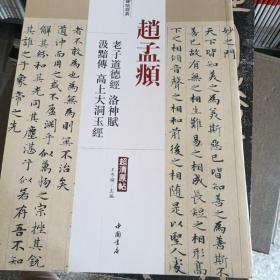 趙孟頫
老子道德經 洛神賦
汲黯傳 高上大洞玉經
超清原帖
主編
中國書店
妙之門
天下皆知美之為美斯惡已皆知善之為善
善已故有無之相生難易之相成長短之相形
下之相傾音聲之相和前後之相隨是以聖人
者不敢為也為無為則無不治矣
道沖而用之或不盈淵兮似萬物之宗挫其銳
解其紛和其光同其塵湛兮似或存吾不知
其誰之子象帝之先